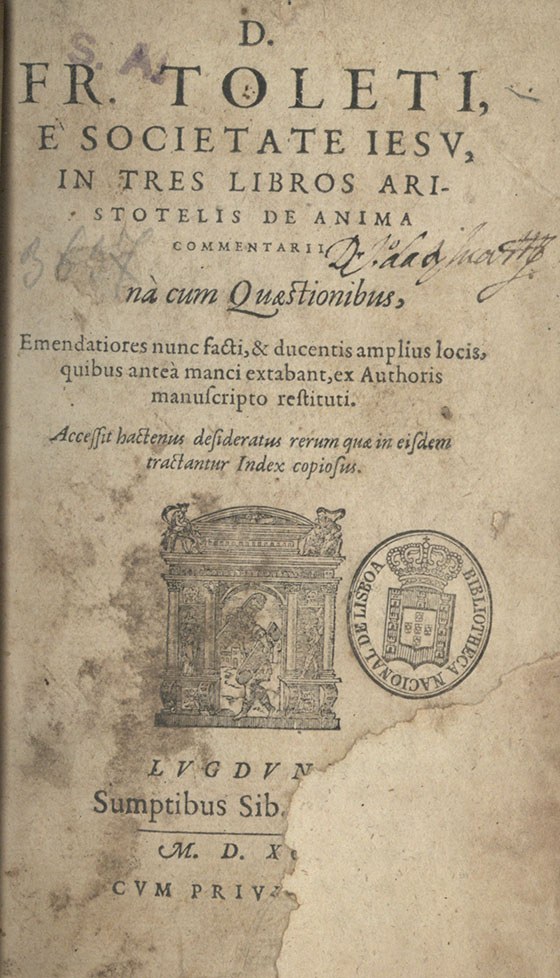 D.
S. A.
FR. TOLETI,
E SOCIETATE IESV,
IN TRES LIBROS ARI-
STOTELIS DE ANIMA
COMMENTARII
3637
nà cum Quæstionibus,
Emendatiores nunc facti, & ducentis amplius locis,
quibus anteà manci extabant, ex Authoris
manuſcripto reſtituti.
Acceſſit hactenus deſideratus rerum quæ in eiſdem
tractantur Index copioſus.
BIBLIOTHECA NACIONAL DE LISBOA
LVGDVN
Sumptibus Sib.
M. D. X
CVM PRIV